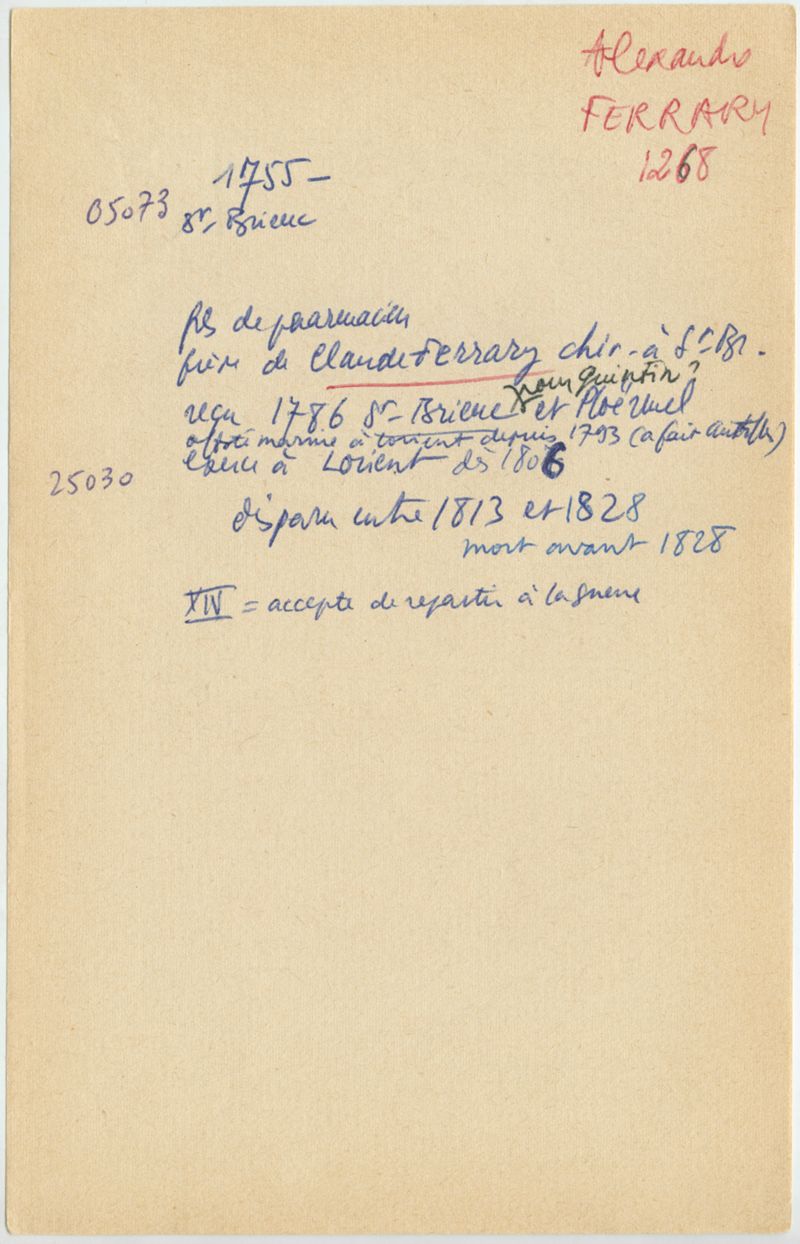 Alexandre
FERRARY
1268
1755 –
05073 St-Brieuc
fils de pharmacien
frère de Claude Ferrary chir. à St-Br.
pour Quintin?
reçu 1786 St-Brieuc et Ploërmel
marine à Lorient depuis 1793 (a fait Antilles)
25030 exerce à Lorient dès 1806
disparu entre 1813 et 1828
mort avant 1828
XIV = accepte de repartir à la guerre